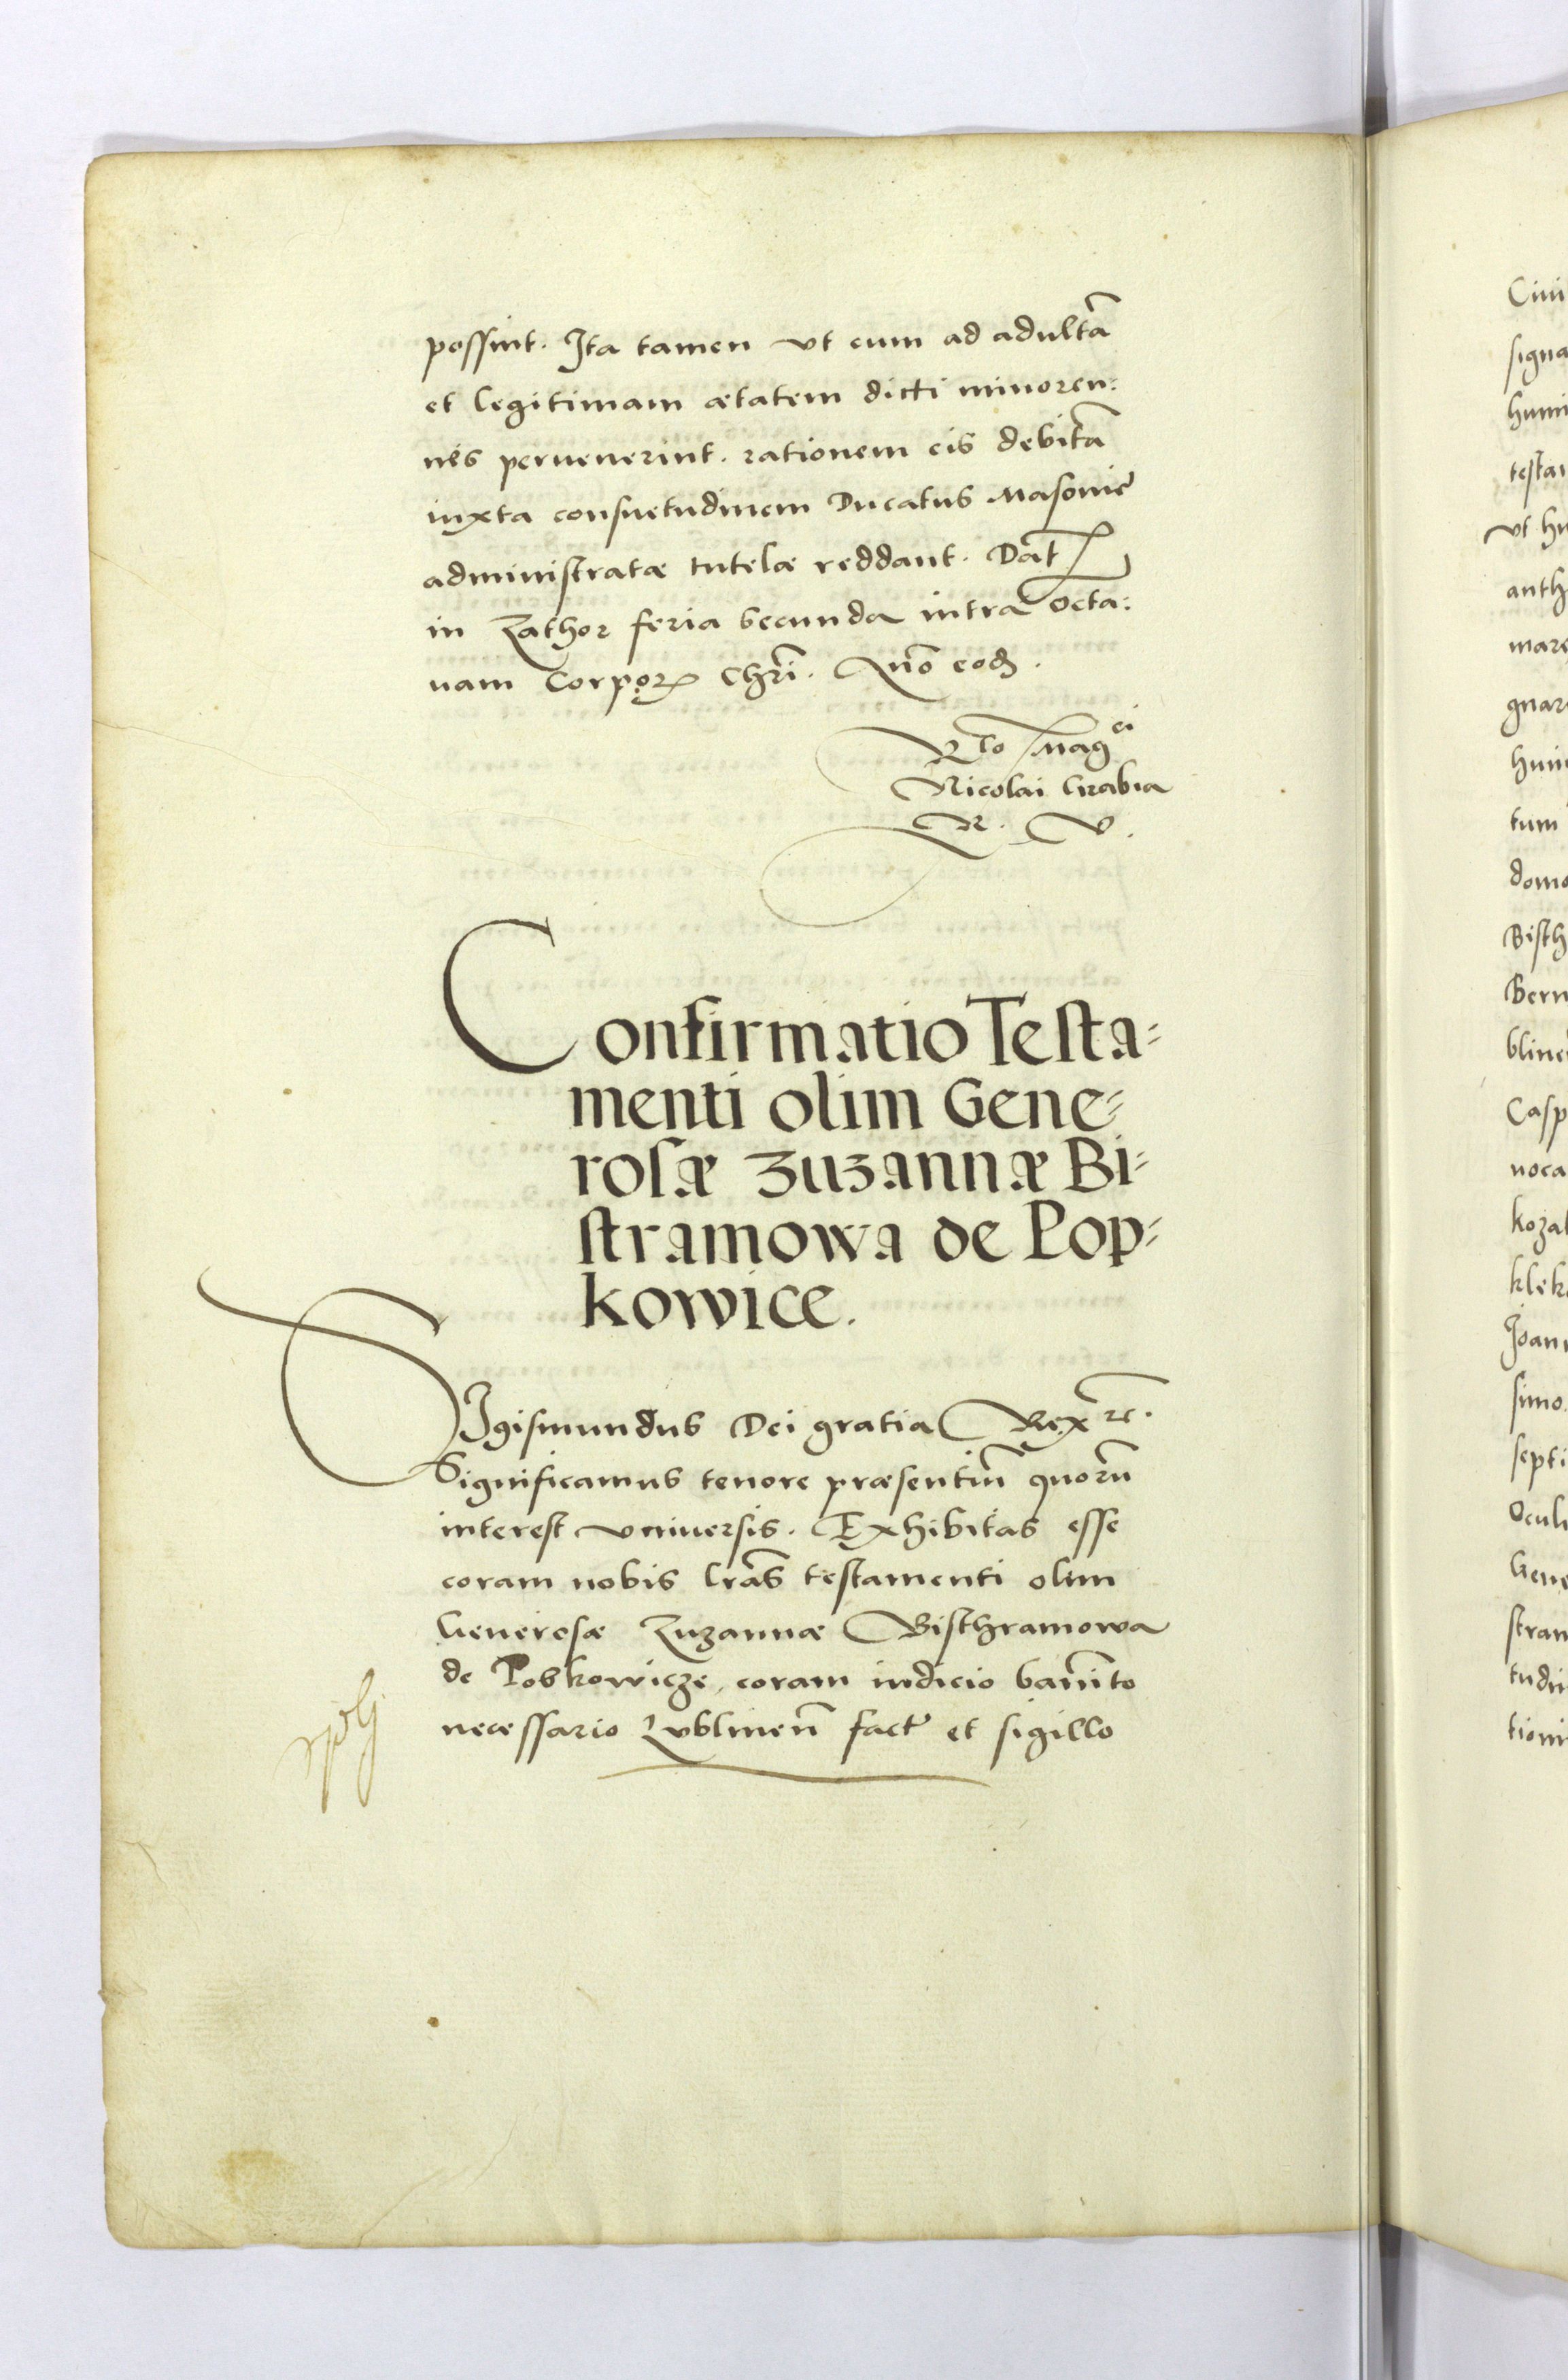 possint. Ita tamen vt cum ad adultā
et legitimam ætatem dicti minoren:
nes peruenerint. rationem eis debitā
iuxta consuetudinem Ducatus Masouiē
administratæ tutelæ reddant. Dat̄
in Zathor feria secunda intra octa:
uam Corporꝭ Chrī. Año eod̄.
Rlo Mag ci
Nicolai Grabia
R. V.
Confirmatio Testa⸗
menti olim Gene⸗
rosæ Zuzannæ Bi⸗
stramowa de Pop⸗
kowice.
SIgismundus Dei gratia Rex ꝛc.
Significamus tenore præsentiū quorū
interest vniuersis. Exhibitas esse
coram nobis lrās testamenti olim
Generosæ Zuzannæ Bisthramowa
de Pobkowicze, coram iudicio bannito
necessario Lublinen̄ factę et sigillo
Ciui
signa
hui
testa
vt hu
anth
mare
gnar
hui
tum
domo
Bisth
Bern
bline
Casp
uoca
koza
klek
Joan
simo
septi
Ocul
Gene
stram
tudi
tioni